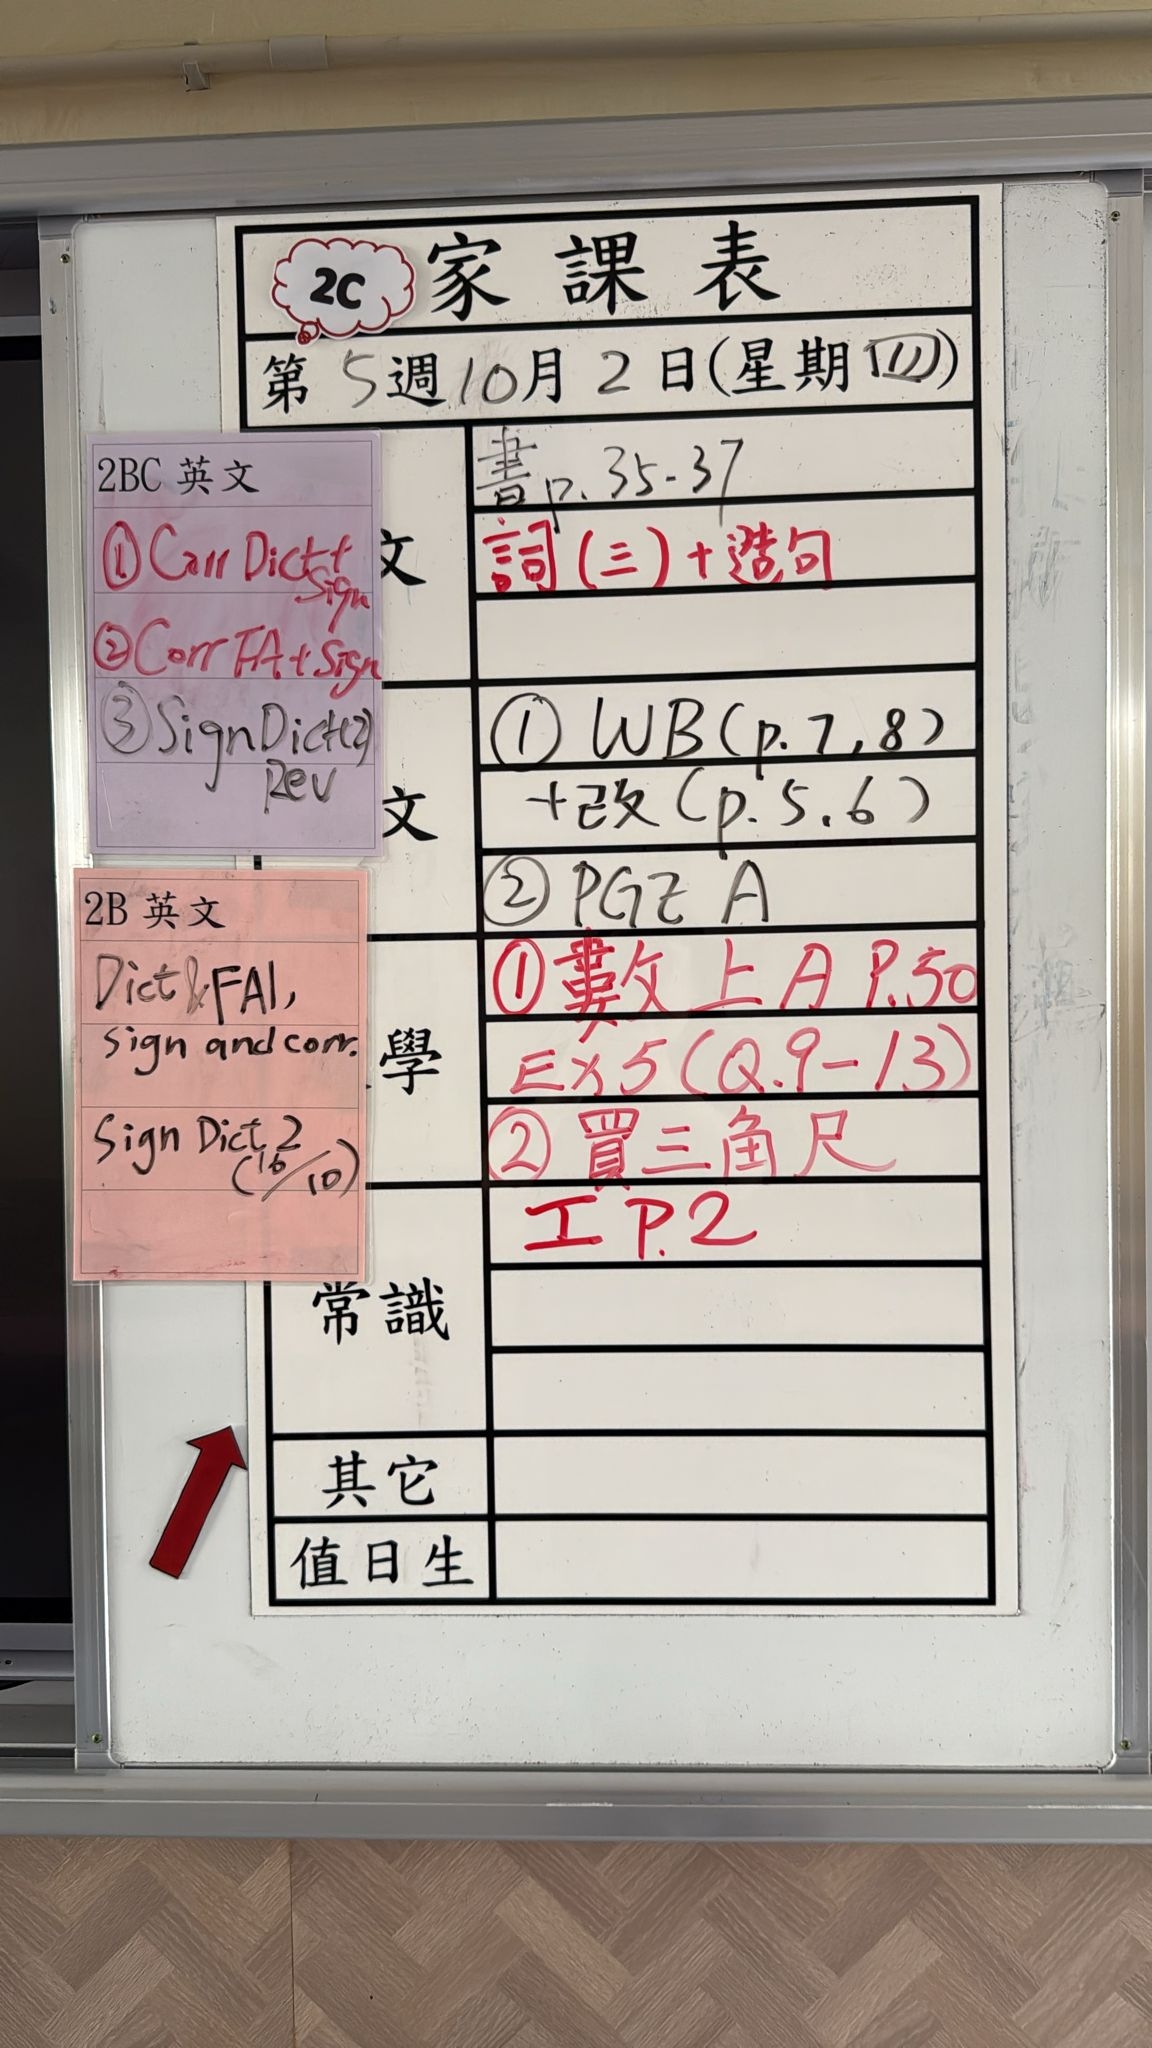 2C 家課表
第5週10月2日(星期四)
文
書p.35-37
詞(三)+造句
文
① WB(p.7,8)
+改(p.5.6)
② PGE A
學
① 數上A P.50
Ex5(Q.9-13)
② 買三角尺
常識
工 P.2
其它
值日生
2BC 英文
① Corr Dict+
Sign
② Corr FA+Sign
③ Sign Dict(2)
Rev
2B 英文
Dict & FA1,
sign and corr.
Sign Dict 2
(16/10)